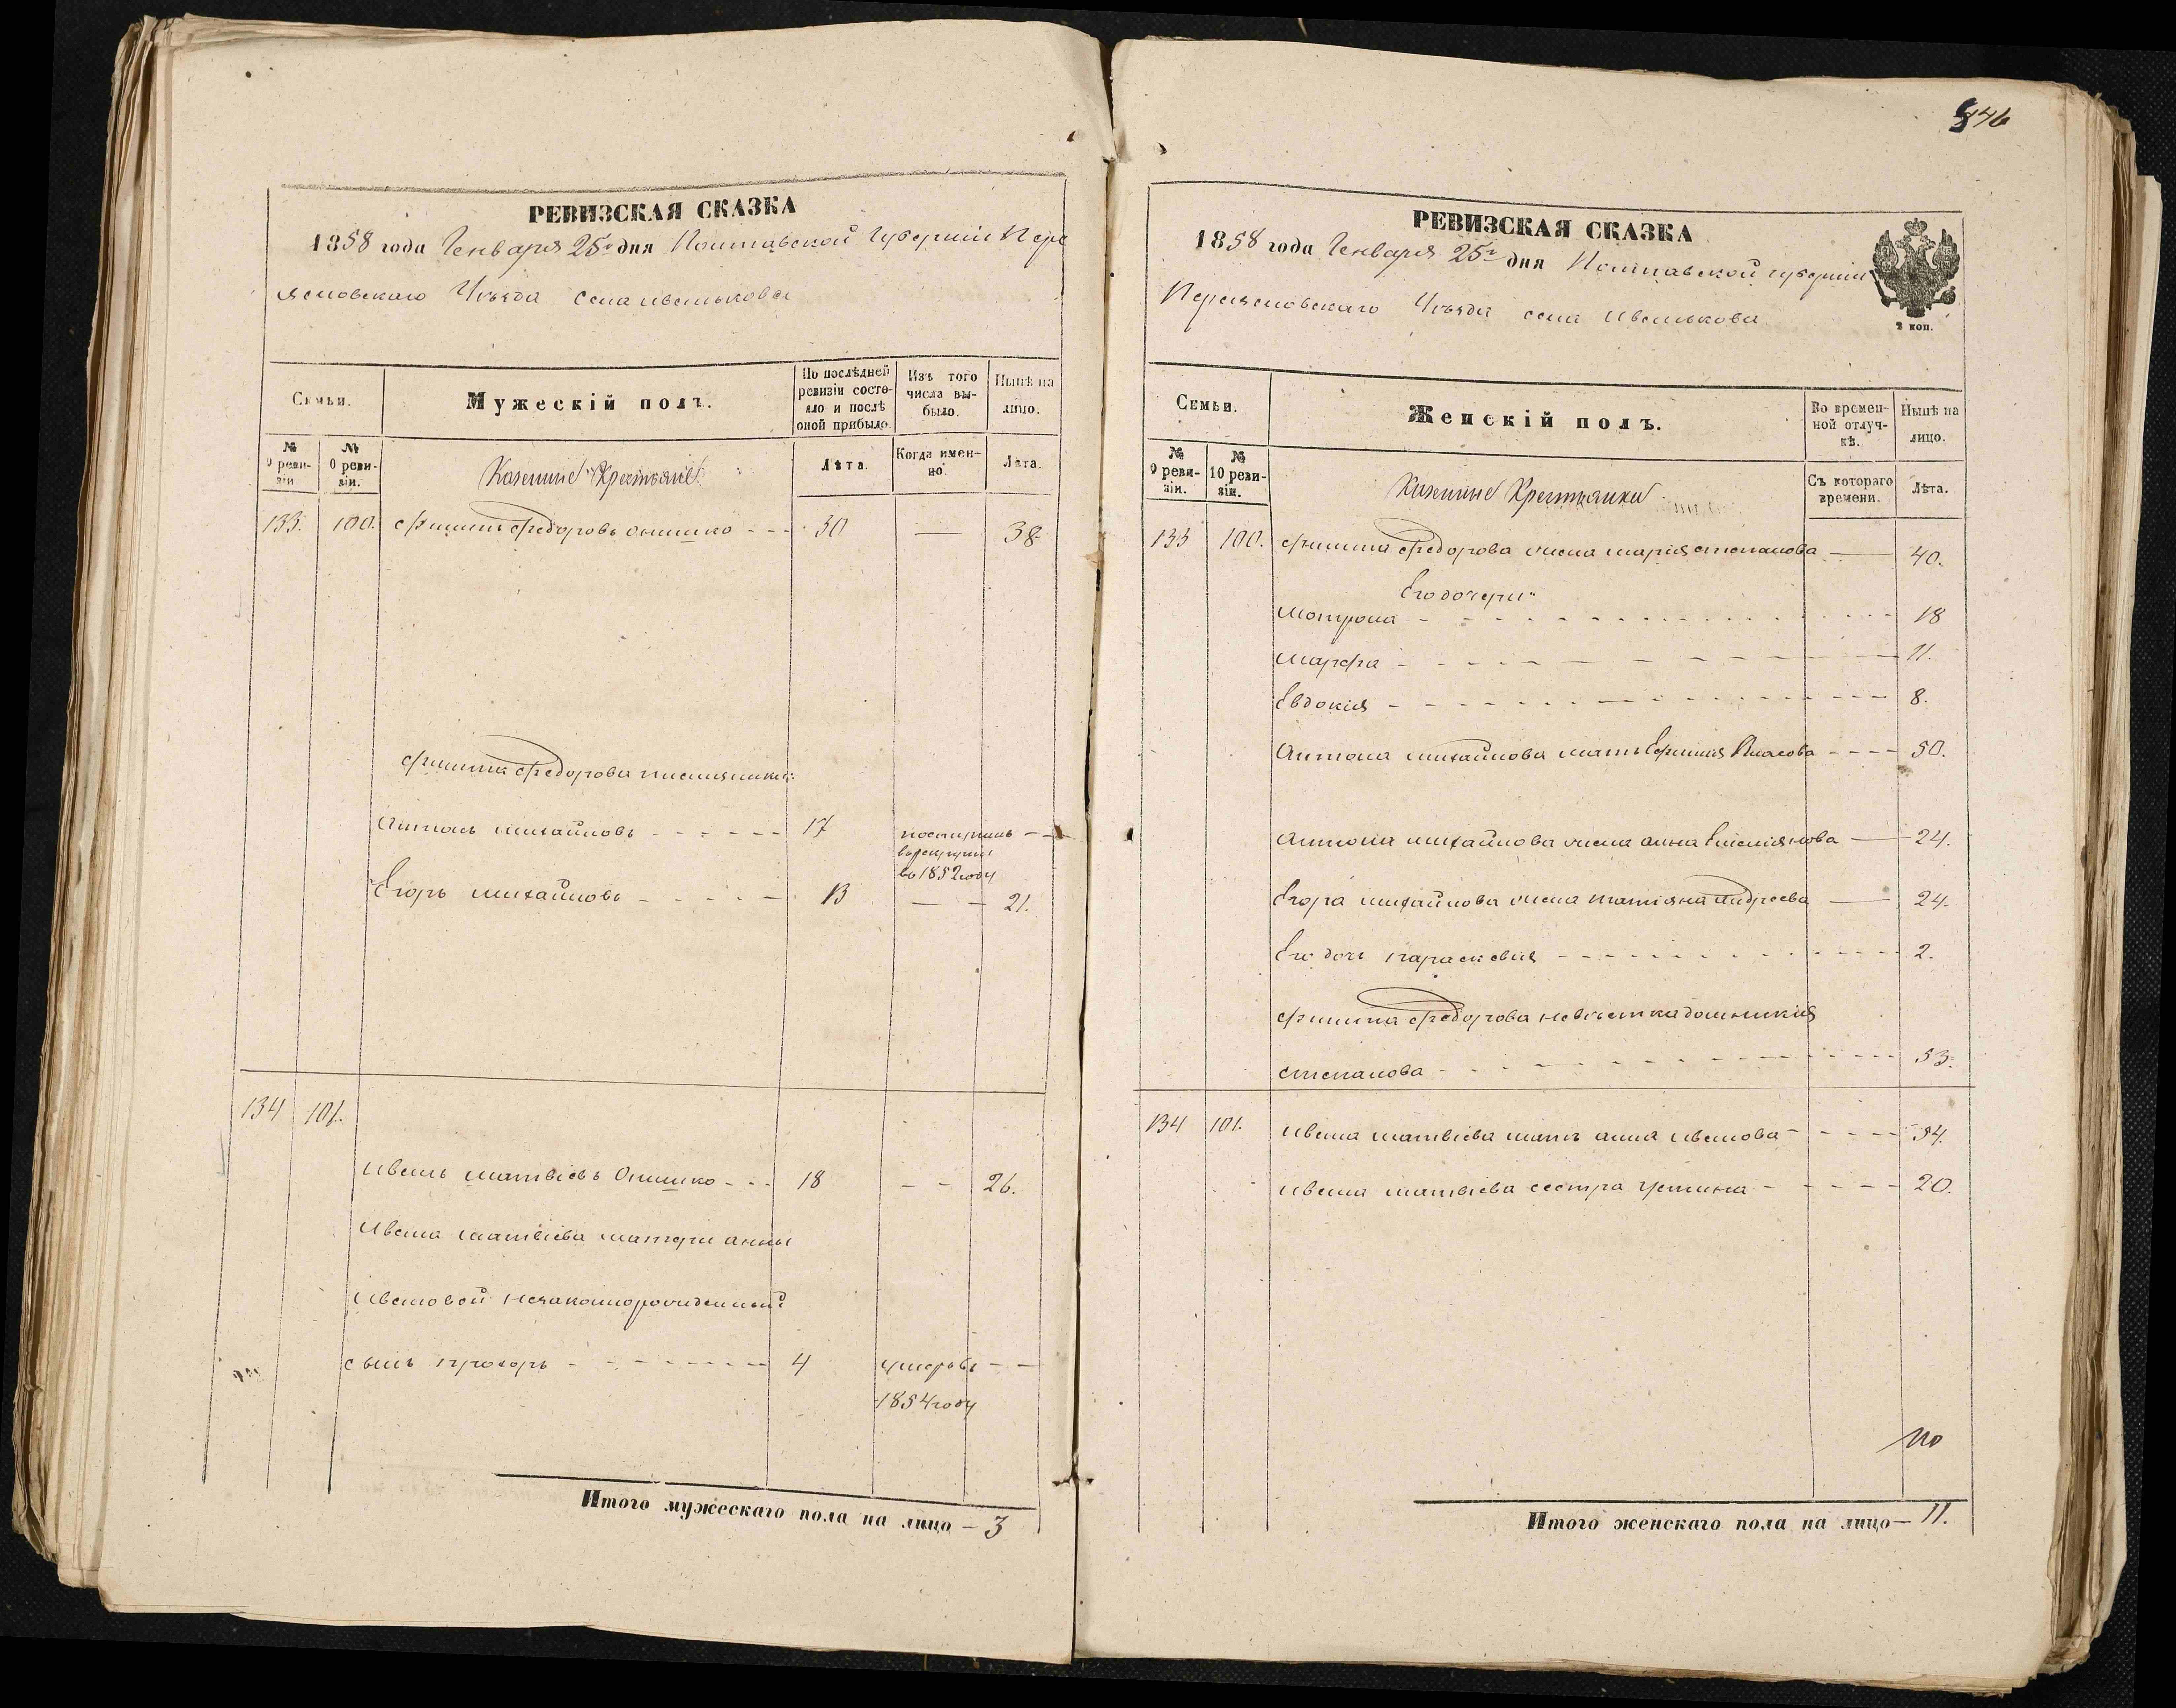 РЕВИЗСКАЯ СКАЗКА
1858 года Генваря 25го дня Полтавской Губерніи Пере
яславскаго Уѣзда села Иванькова
Семьи.
Мужескій полъ.
По послѣдней ревизіи состояло и послѣ оной прибыло
Изъ того числа выбыло.
Нынѣ на лицо.
№ 9 ревизіи
№ 10 ревизіи.
Казенные Крестьяне
Лѣта.
Когда именно.
Лѣта.
133. 100. Филипъ Федоровъ Онишко - - - 30 — 38
Филипа Федорова племяники:
Антонъ Михайловъ - - - - - - 17 поступилъ - -
в рекруты
въ 1852 году
Егоръ Михайловъ - - - - - 13 — - 21.
134 101.
Иванъ Матвіевъ Онишко - - - 18 - - 26.
Ивана Матвіева матери Анны
Ивановой незаконорожденный
сынъ Прохоръ - - - - - - - 4 умеръ въ - -
1854 году
Итого мужескаго пола на лицо - 3
846
РЕВИЗСКАЯ СКАЗКА
1858 года Генваря 25го дня Полтавской губерніи
Переяславскаго Уѣзда села Иванькова
2 коп.
Семьи.
Женскій полъ.
Во временной отлучкѣ.
Нынѣ на лицо.
№ 9 ревизіи.
№ 10 ревизіи.
Казенные Крестьянки
Съ котораго времени.
Лѣта.
133 100. Филипа Федорова жена Марія Степанова — 40.
Его дочери:
Мотрона - - - - - - 18
Марфа - - - - - - 11.
Евдокія - - - - - - 8.
Антона Михайлова мать Ефимія Власова - - - - 50.
Антона Михайлова жена Анна Емеліянова — 24.
Егора Михайлова жена Татіяна Андреева — 24.
Его дочь Параскевія - - - - - - 2.
Филипа Федорова невѣстка Домникія
Степанова - - - - - - 53.
134 101. Ивана Матвіева мать Анна Иванова - - - - 54.
Ивана Матвіева сестра Устина - - - - - 20.
Итого женскаго пола на лицо — 11.